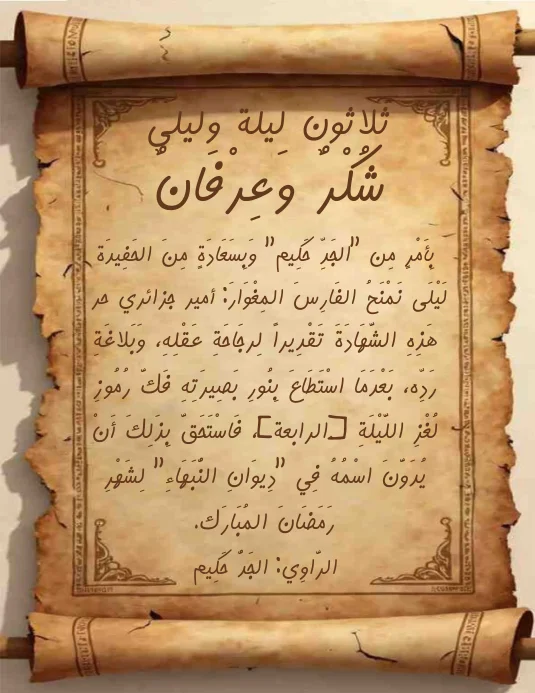 ثلاثون لَيلة وليلي
شُكْرٌ وَعِرْفَانٌ
بِأَمْرٍ مِن "الجَدِّ حَكِيم" وَبِسَعَادَةٍ مِنَ الحَفِيدَة
لَيْلَى نَمْنَحُ الفَارِسَ المِغْوَار: أمير جزائري حر
هَذِهِ الشَّهَادَةَ تَقْدِيراً لِرجَاحَةِ عَقْلِهِ، وَبَلاغَةِ
رَدِّه، بَعْدَمَا اسْتَطَاعَ بِنُورِ بَصِيرَتِهِ فَكَّ رُمُوزِ
لُغْزِ اللَّيْلَةِ [الرابعة]، فَاسْتَحَقَّ بِذَلِكَ أَنْ
يُدَوَّنَ اسْمُهُ فِي "دِيوَانِ النُّبَهَاءِ" لِشَهْرِ
رَمَضَانَ المُبَارَك.
الرَّاوِي: الجَدُّ حَكِيم